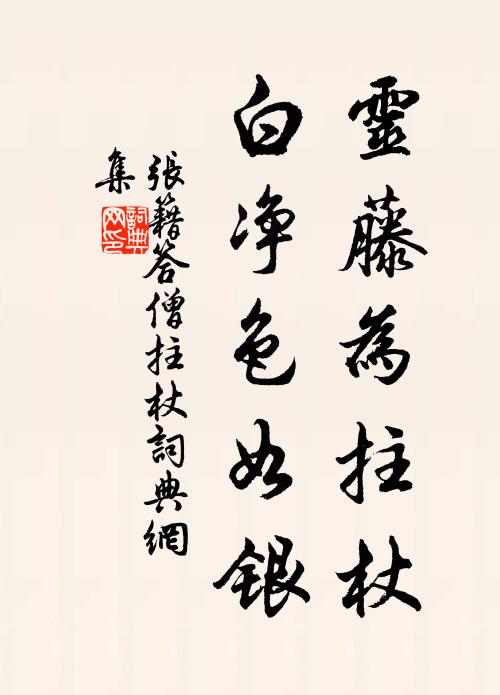 靈藤為拄杖
白净色如銀
張籍答僧拄杖詞典網
集
詞典
网印